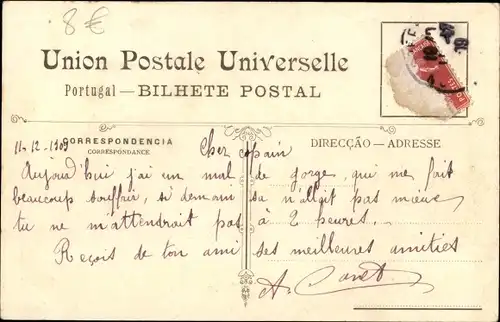 8 €
Union Postale Universelle
Portugal — BILHETE POSTAL
CORRESPONDENCIA
CORRESPONDANCE
DIRECÇÃO — ADRESSE
11-12-1909
Cher copain
Aujourd'hui j'ai un mal de gorge, qui me fait
beaucoup souffrir, si demain sa n'allait pas mieux
tu ne m'attendrait pas à 2 heures.
Reçois de ton ami ses meilleures amitiés
A.